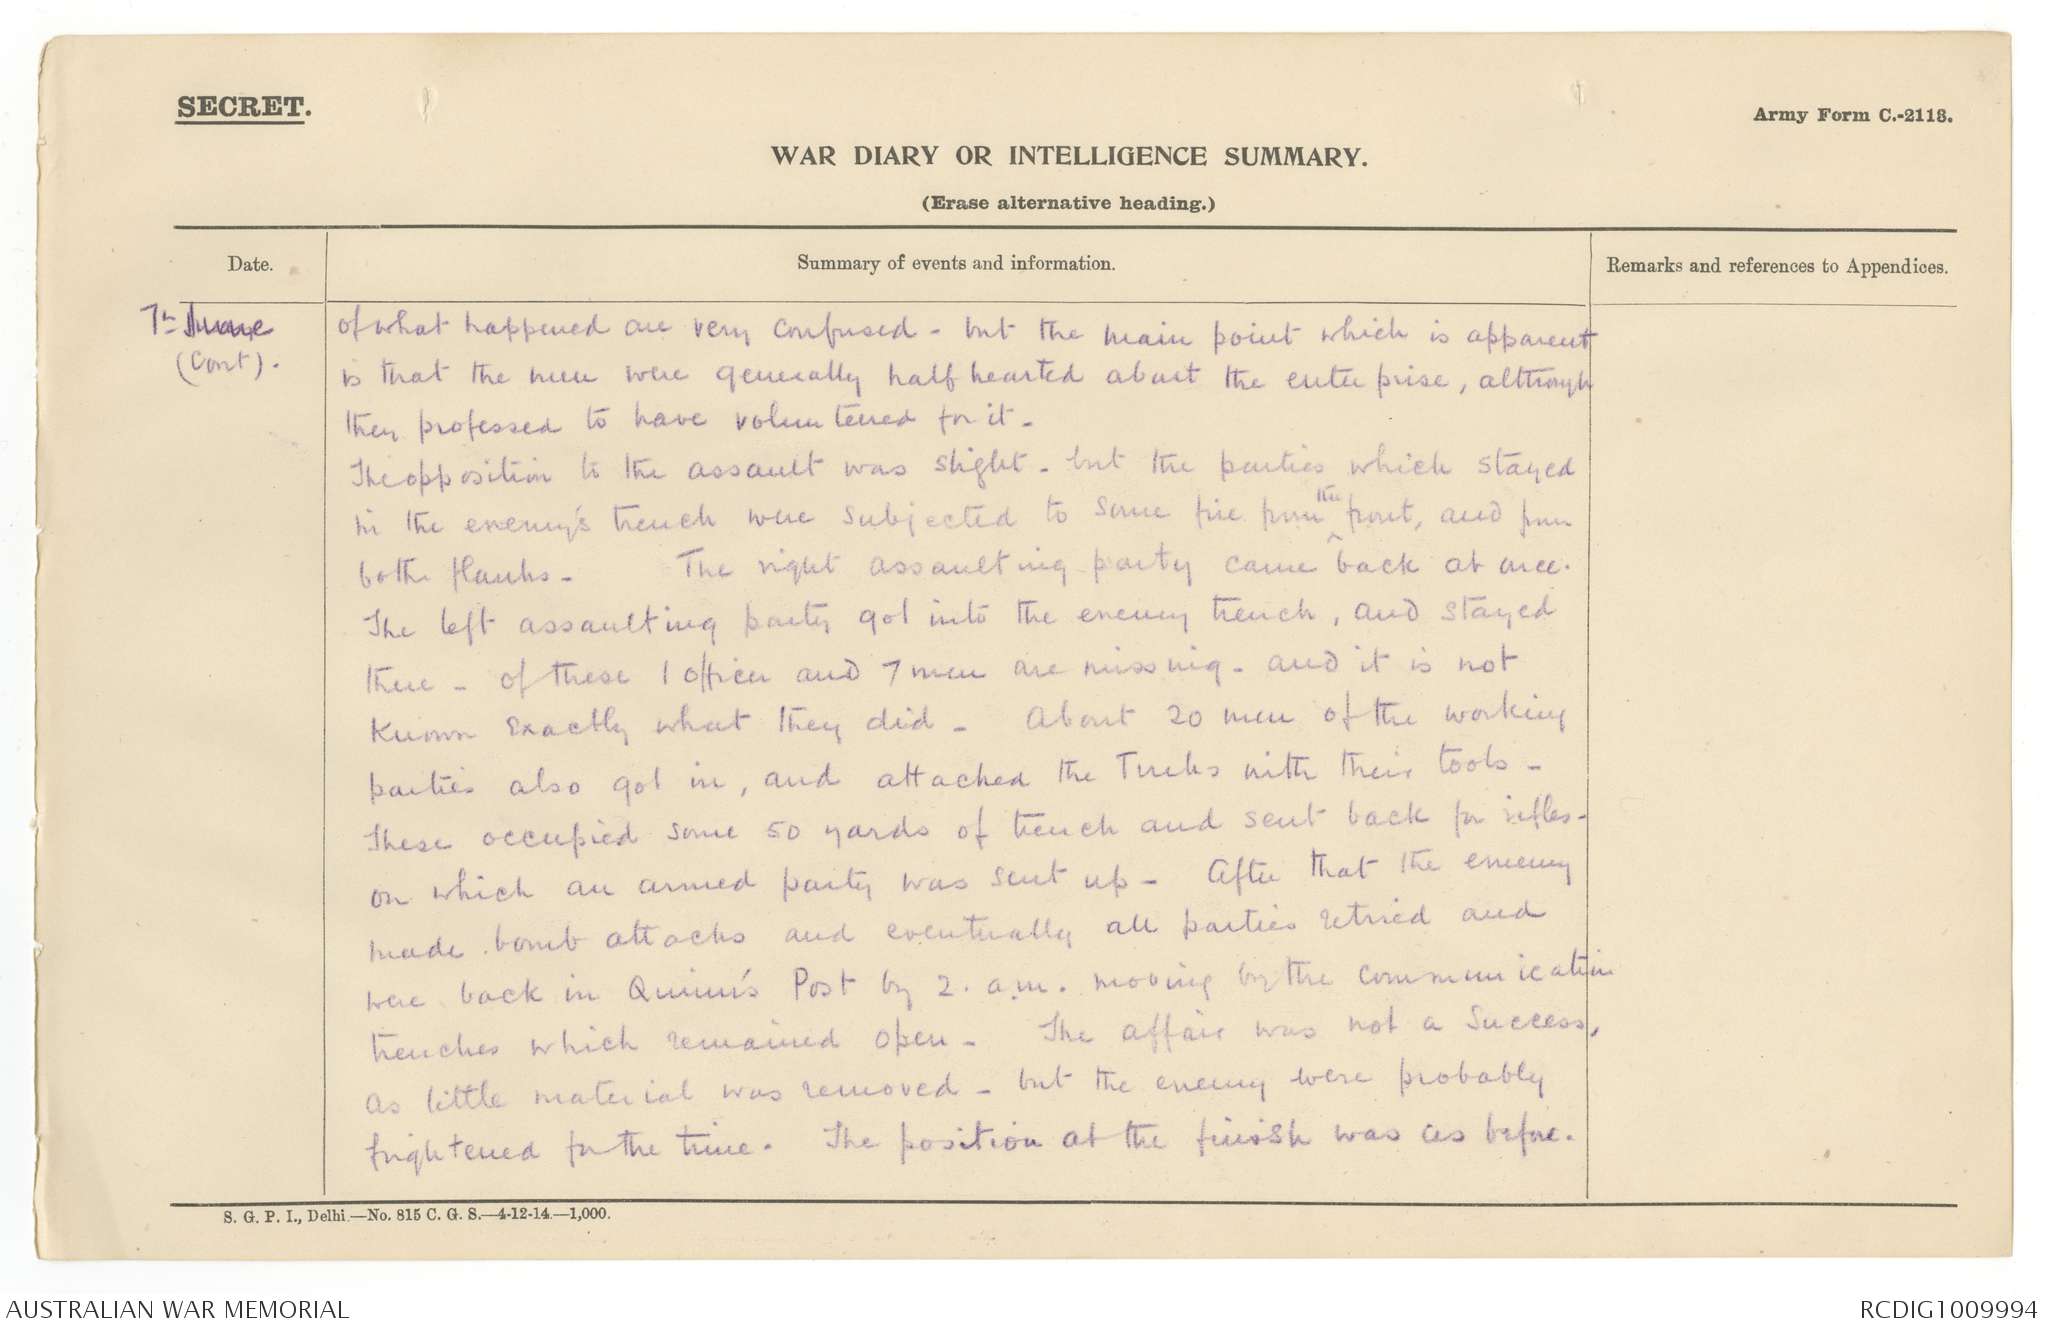 SECRET.
Army Form C.-2118.
WAR DIARY OR INTELLIGENCE SUMMARY.
(Erase alternative heading.)
Date.
Summary of events and information.
Remarks and references to Appendices.
7th June
(Cont).
of what happened are very confused - but the main point which is apparent
is that the men were generally half hearted about the enterprise, although
they professed to have volunteered for it -
The opposition to the assault was slight - but the parties which stayed
in the enemy's trench were subjected to some fire from the front, and from
both flanks - The right assaulting party came back at once.
The left assaulting party got into the enemy trench, and stayed
there - of these 1 officer and 7 men are missing - and it is not
known exactly what they did - About 20 men of the working
parties also got in, and attacked the Turks with their tools -
These occupied some 50 yards of trench and sent back for rifles -
on which an armed party was sent up - After that the enemy
made bomb attacks and eventually all parties retired and
were back in Quinn's Post by 2. a.m. moving by the communication
trenches which remained open - The affair was not a success,
as little material was removed - but the enemy were probably
frightened for the time. The position at the finish was as before.
S. G. P. I., Delhi.—No. 815 C. G. S.—4-12-14.—1,000.
AUSTRALIAN WAR MEMORIAL
RCDIG1009994